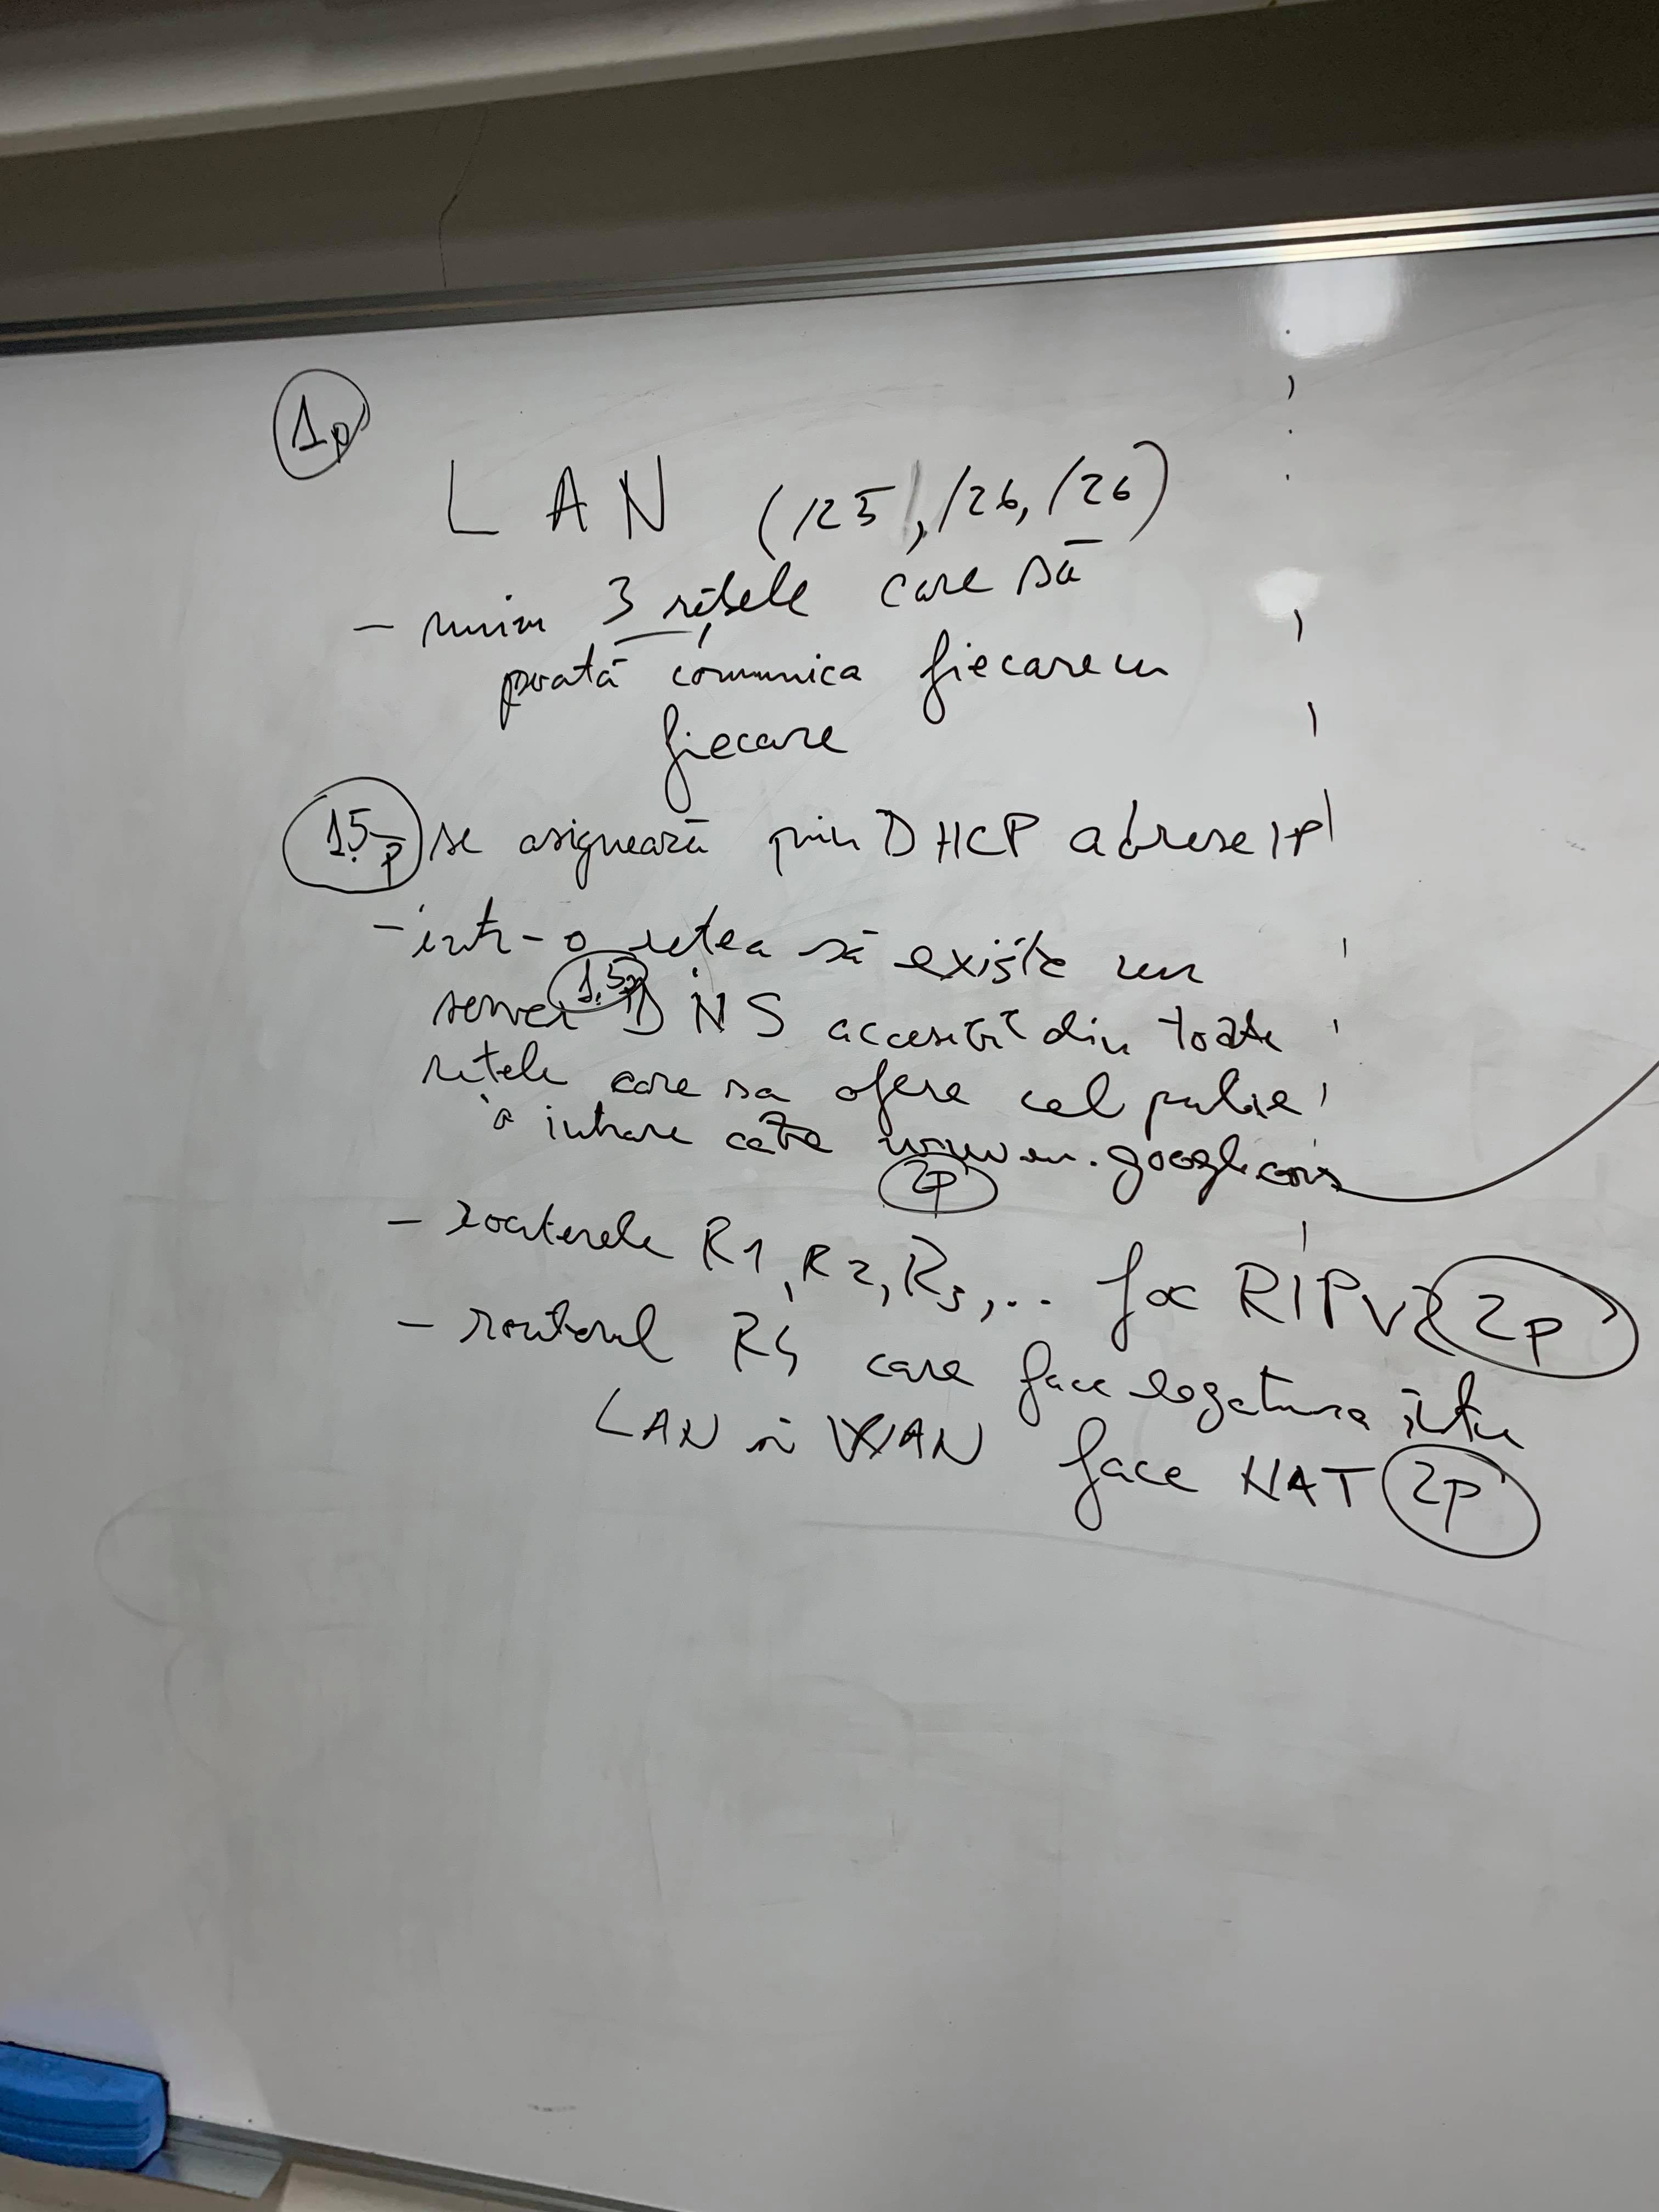 1p
LAN (/25, /26, /26)
- minim 3 rețele care să
poată comunica fiecare cu
fiecare
1.5p se asignează prin DHCP adrese IP
- într-o rețea să existe un
server 1.5p DNS accesibil din toate
rețele care sa ofere cel puțin
o intrare către www.google.com
2p
- routerele R1, R2, R3, ... fac RIPv2 2p
- routerul R4 care face legatura între
LAN și WAN face NAT 2p